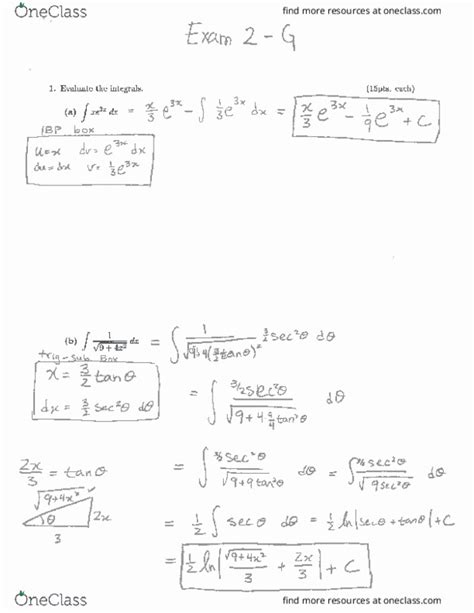 OneClass
find more resources at oneclass.com
Exam 2 - G
1. Evaluate the integrals. (15pts. each)
(a) ∫ xe^{3x} dx = x/3 e^{3x} - ∫ 1/3 e^{3x} dx = x/3 e^{3x} - 1/9 e^{3x} + C
IBP box
u=x dv = e^{3x} dx
du = dx v = 1/3 e^{3x}
(b) ∫ 1/√(9 + 4x²) dx = ∫ 1/√(9+4(3/2 tanθ)²) 3/2 sec²θ dθ
trig-sub Box
x = 3/2 tanθ
dx = 3/2 sec²θ dθ
= ∫ 3/2 sec²θ/√(9+4 9/4 tan²θ) dθ
2x/3 = tanθ
= ∫ 3/2 sec²θ/√(9+9tan²θ) dθ = ∫ 3/2 sec²θ/√(9sec²θ) dθ
√(9+4x²)
θ
2x
3
= 1/2 ∫ secθ dθ = 1/2 ln|secθ + tanθ| + C
= 1/2 ln|√(9+4x²)/3 + 2x/3| + C
OneClass
find more resources at oneclass.com